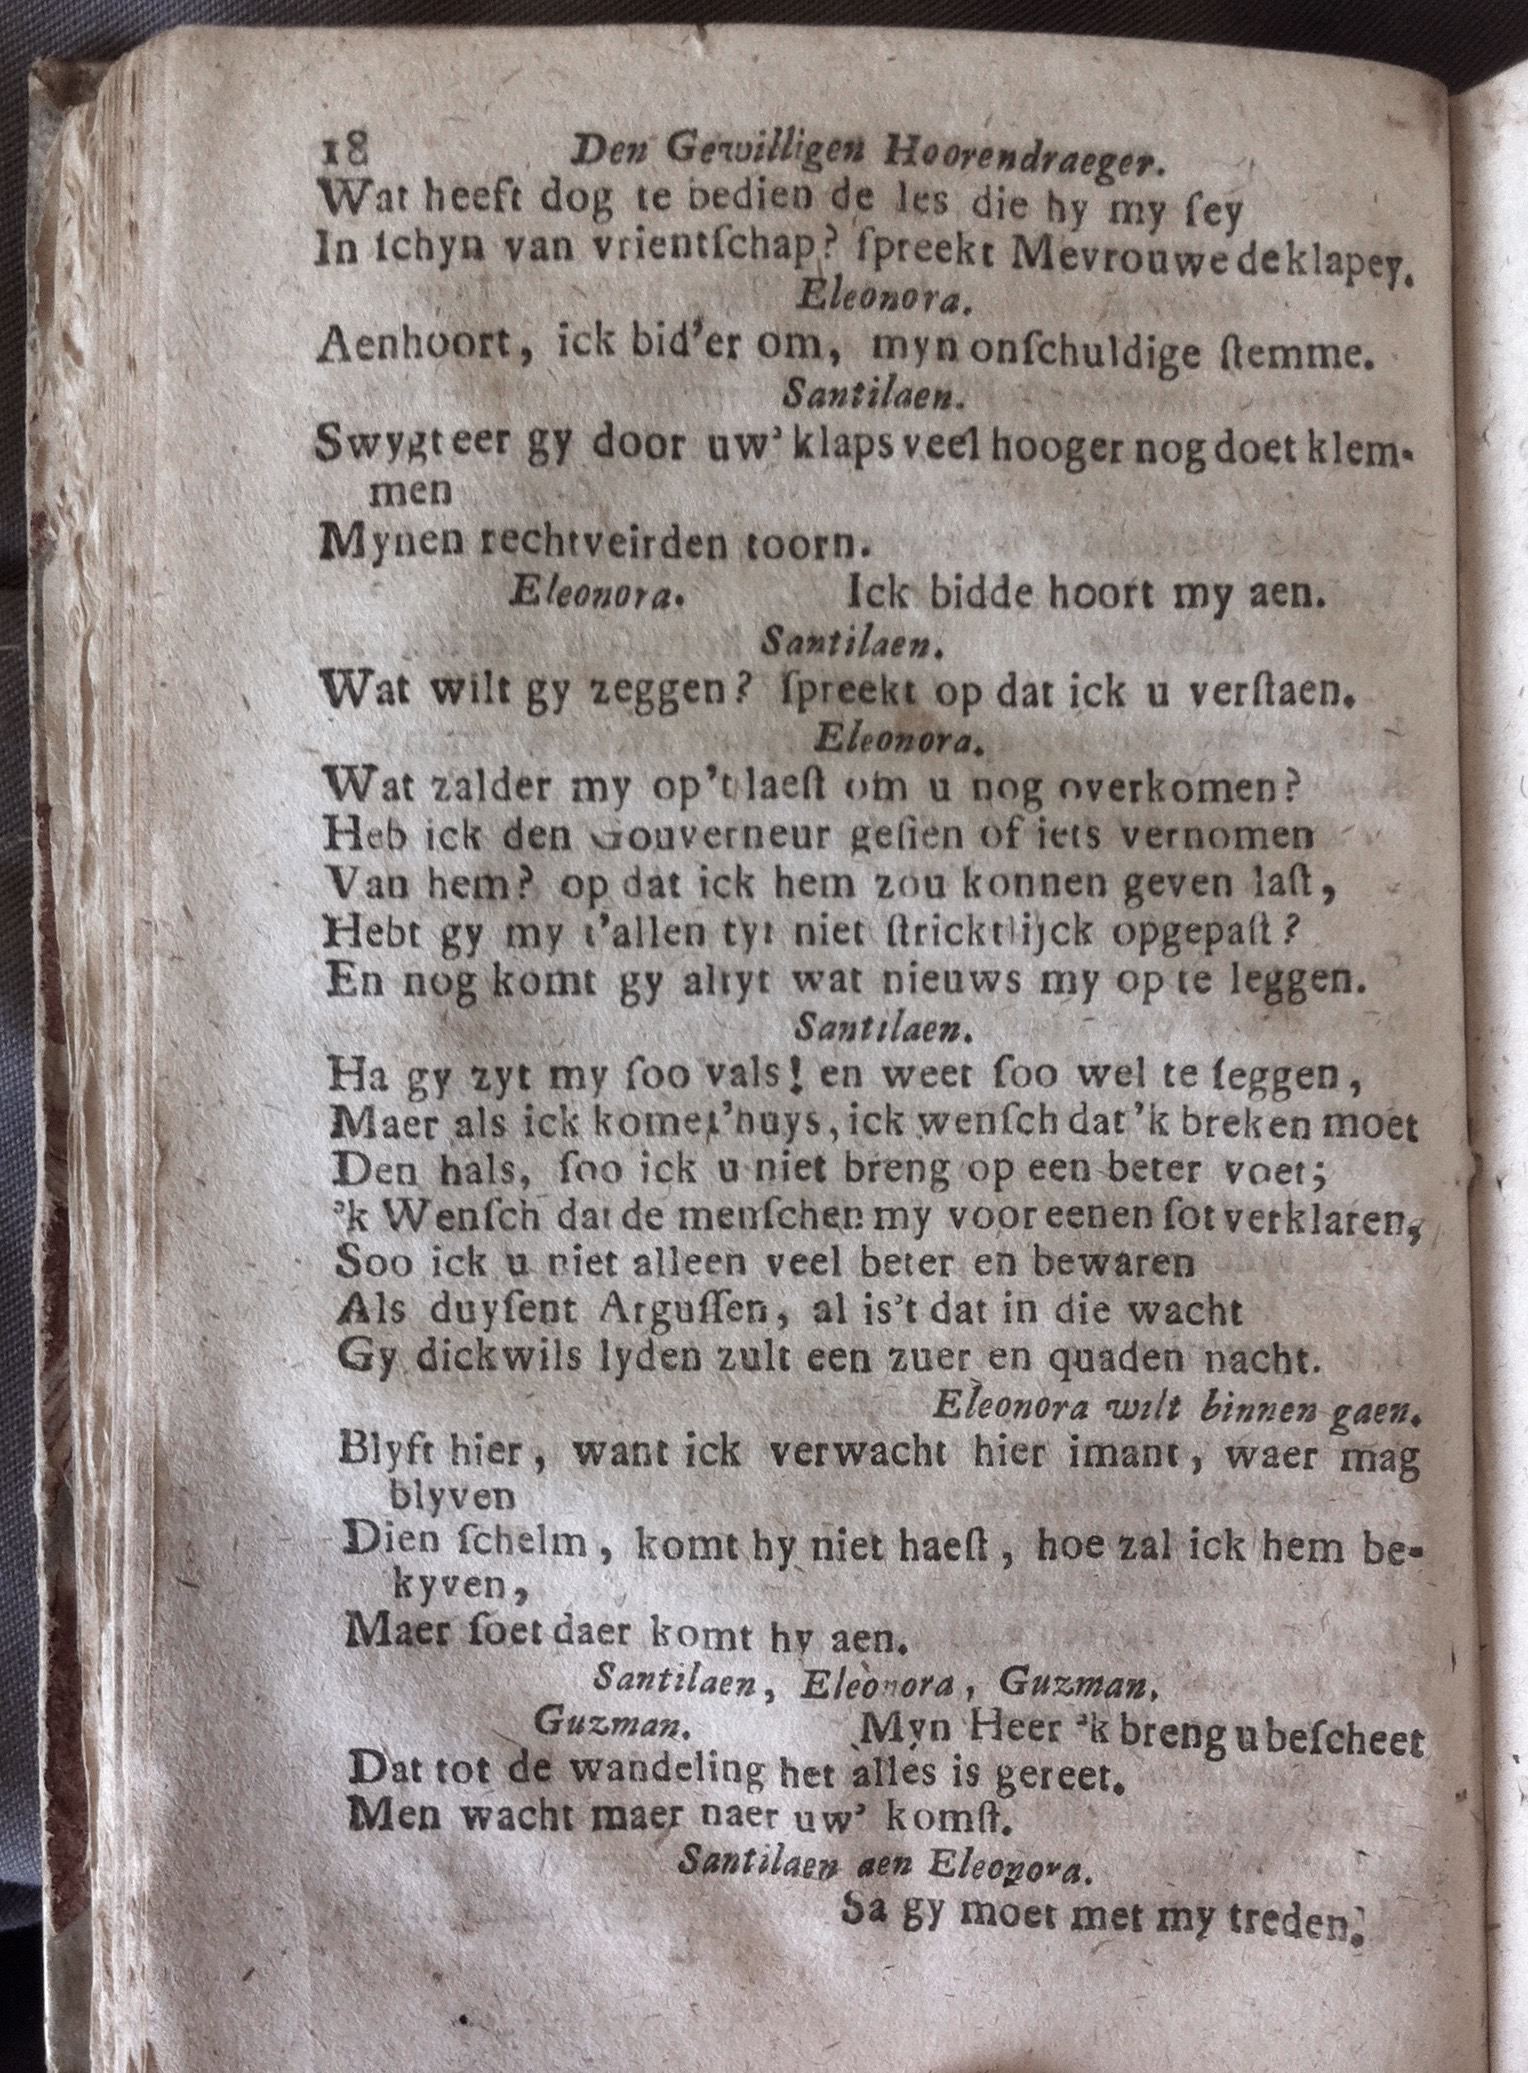 18 Den Gewilligen Hoorendraeger.
Wat heeft dog te bedien de les die hy my ſey
In ſchyn van vrientſchap? ſpreekt Mevrouwe de klapey.
Eleonora.
Aenhoort, ick bid'er om, myn onſchuldige ſtemme.
Santilaen.
Swygt eer gy door uw' klaps veel hooger nog doet klem-
men
Mynen rechtveirden toorn.
Eleonora. Ick bidde hoort my aen.
Santilaen.
Wat wilt gy zeggen? ſpreekt op dat ick u verſtaen.
Eleonora.
Wat zalder my op't laeſt om u nog overkomen?
Heb ick den Gouverneur geſien of iets vernomen
Van hem? op dat ick hem zou konnen geven laſt,
Hebt gy my t'allen tyt niet ſtricktlijck opgepaſt?
En nog komt gy altyt wat nieuws my op te leggen.
Santilaen.
Ha gy zyt my ſoo vals! en weet ſoo wel te ſeggen,
Maer als ick kome t'huys, ick wenſch dat 'k breken moet
Den hals, ſoo ick u niet breng op een beter voet;
'k Wenſch dat de menſchen my voor eenen ſot verklaren,
Soo ick u niet alleen veel beter en bewaren
Als duyſent Arguſſen, al is't dat in die wacht
Gy dickwils lyden zult een zuer en quaden nacht.
Eleonora wilt binnen gaen.
Blyft hier, want ick verwacht hier imant, waer mag
blyven
Dien ſchelm, komt hy niet haeſt, hoe zal ick hem be-
kyven,
Maer ſoet daer komt hy aen.
Santilaen, Eleonora, Guzman.
Guzman. Myn Heer 'k breng u beſcheet
Dat tot de wandeling het alles is gereet.
Men wacht maer naer uw' komſt.
Santilaen aen Eleonora.
Sa gy moet met my treden.